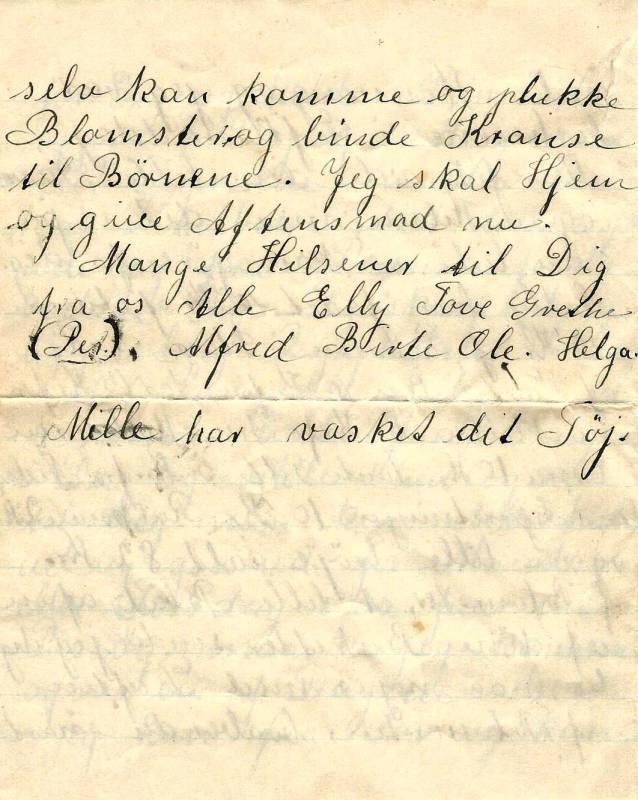 selv kan komme og plukke
Blomster og binde Kranse
til Börnene. Jeg skal Hjem
og give Aftensmad nu.
Mange Hilsener til Dig
fra os Alle Elly Tove Grethe
(Per.). Alfred Birte Ole. Helga.
Mille har vasket dit Töj.